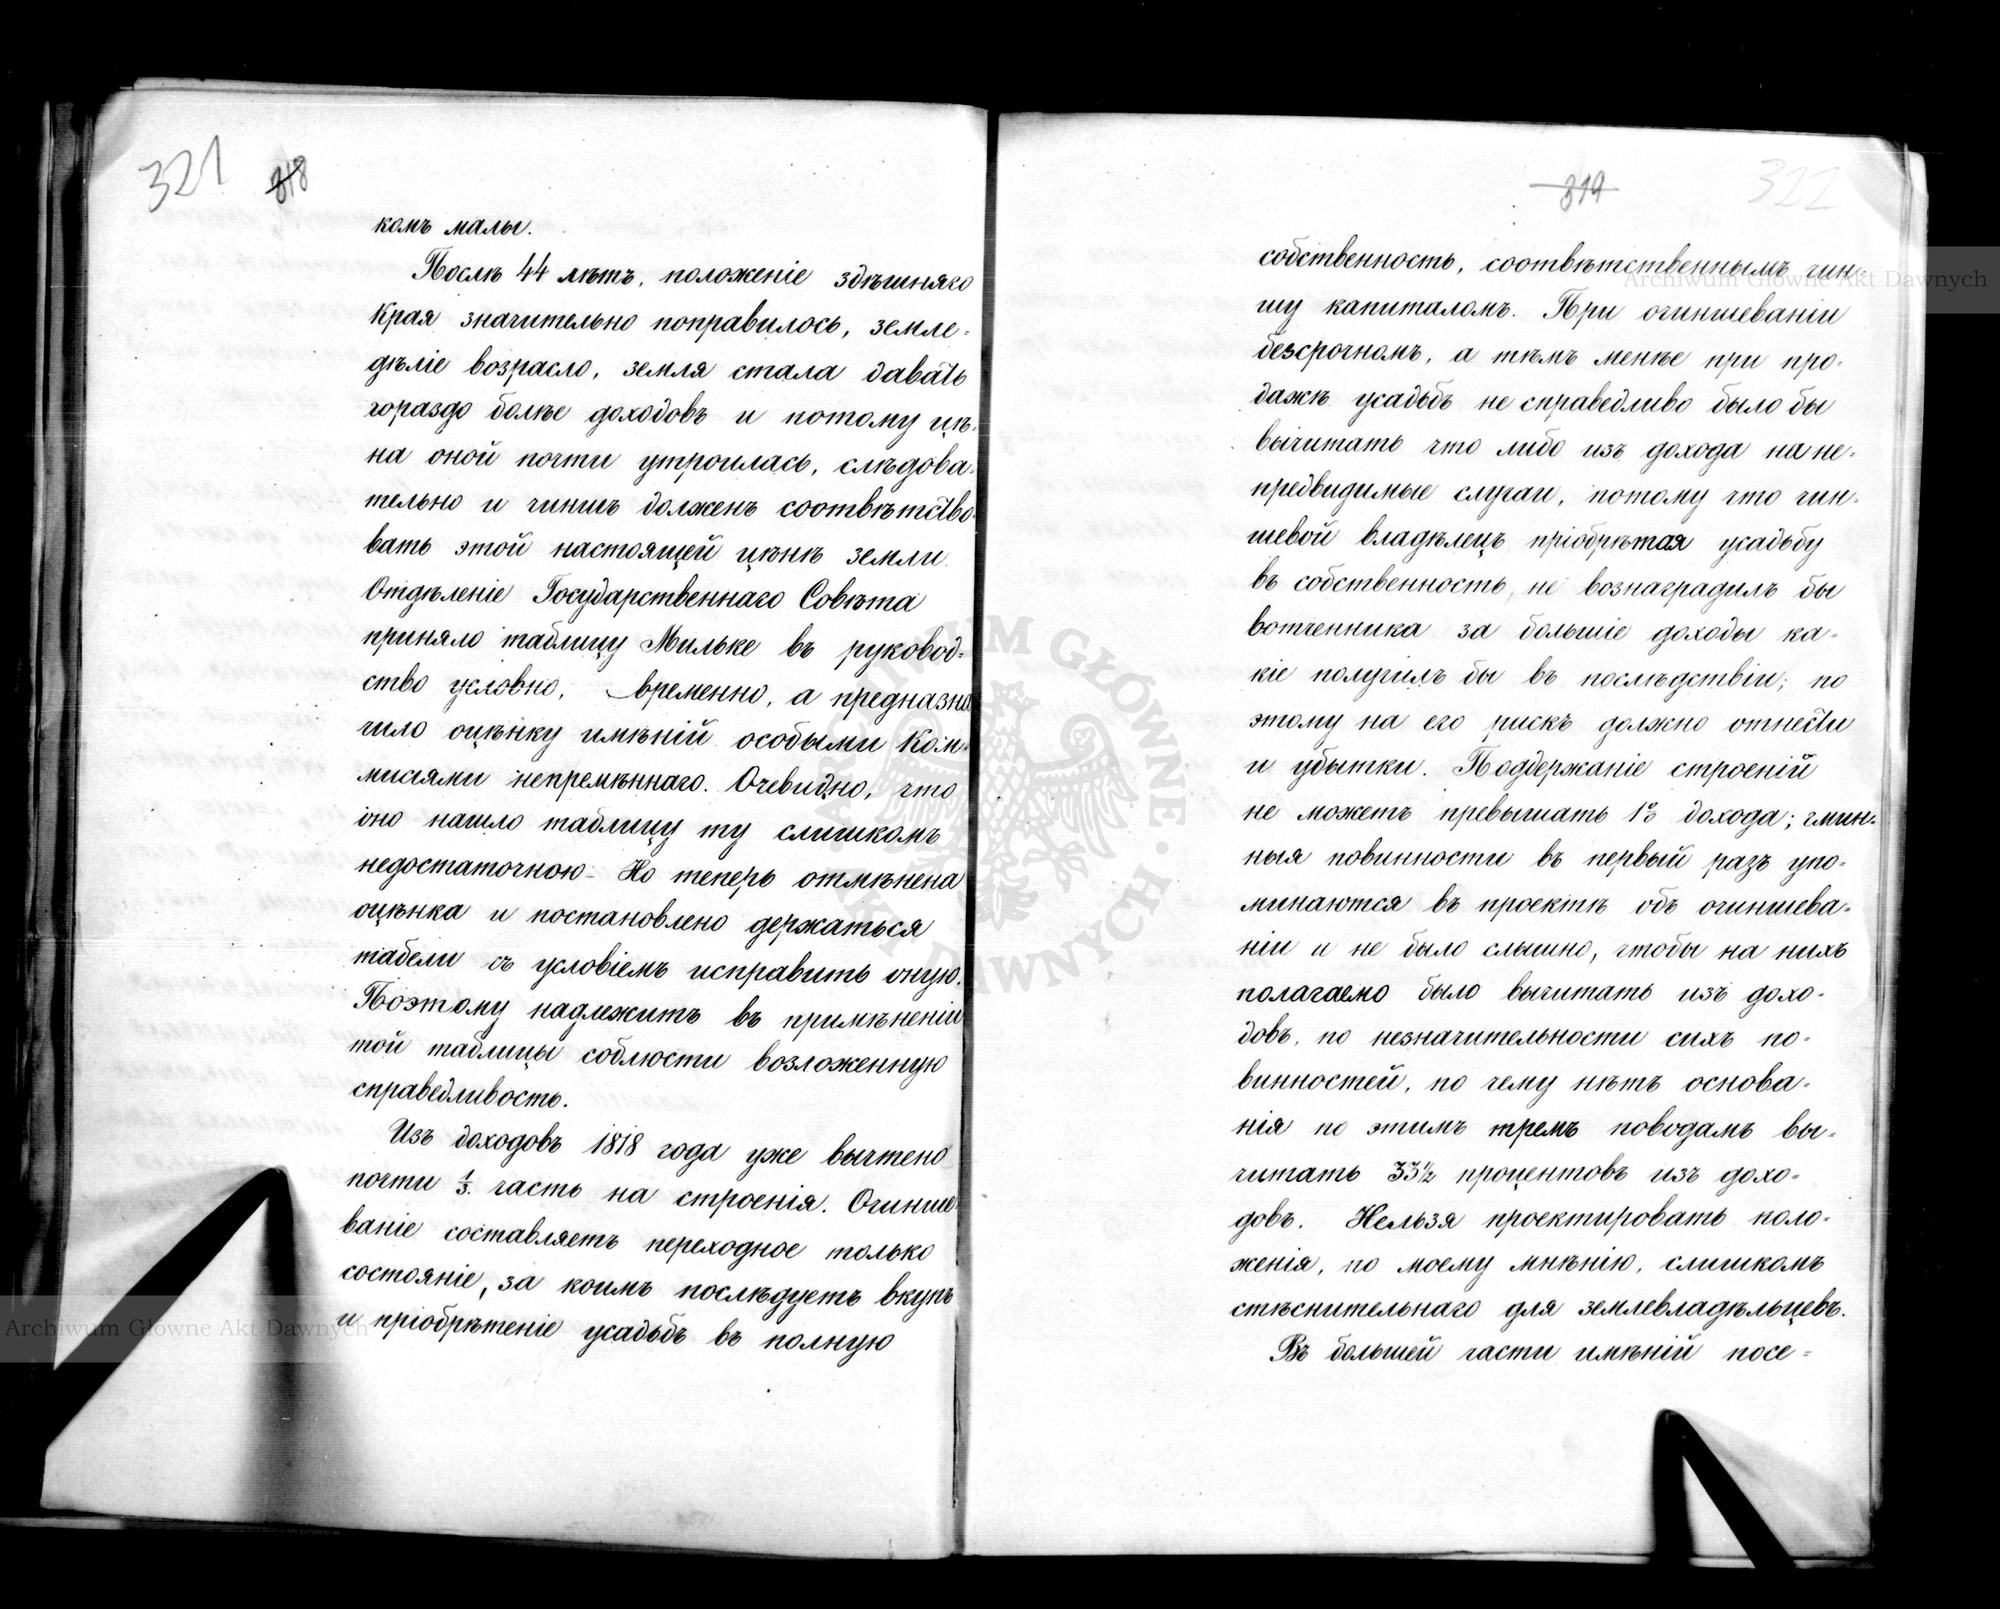 321 818
комъ малы.
Послѣ 44 лѣтъ, положеніе здѣшняго
Края значительно поправилось, земле-
дѣліе возрасло, земля стала давать
гораздо болѣе доходовъ и потому цѣ-
на оной почти утроилась, слѣдова-
тельно и чиншъ долженъ соотвѣтство
вать этой настоящей цѣнѣ земли.
Отдѣленіе Государственнаго Совѣта
приняло таблицу Мильке въ руковод-
ство условно, временно, а предназна
чило оцѣнку имѣній особыми Ком-
мисіями непремѣннаго. Очевидно, что
оно нашло таблицу ту слишкомъ
недостаточною - Но теперь отмѣнена
оцѣнка и постановлено держаться
табели съ условіемъ исправить оную.
Поэтому надлежитъ въ примѣненіи
той таблицы соблюсти возложенную
справедливость.
Изъ доходовъ 1818 года уже вычтено
почти 1/3. часть на строенія. Очинше
ваніе составляетъ переходное только
состояніе, за коимъ послѣдуетъ вкупъ
и пріобрѣтеніе усадьбъ въ полную
819 322
собственность, соотвѣтственнымъ чин-
шу капиталомъ. При очиншеваніи
безсрочномъ, а тѣмъ менѣе при про-
дажѣ усадьбъ не справедливо было бы
вычитать что либо изъ дохода на не-
предвидимые случаи, потому что чин-
шевой владѣлецъ пріобрѣтая усадьбу
въ собственность, не вознаградилъ бы
вотченника за большіе доходы ка-
кіе получилъ бы въ послѣдствіи; по
этому на его рискъ должно отнести
и убытки. Поддержаніе строеній
не можетъ превышать 1% дохода; гмин-
ныя повинности въ первый разъ упо-
минаются въ проектѣ объ очиншева-
ніи и не было слышно, чтобы на нихъ
полагаемо было вычитать изъ дохо-
довъ, по незначительности сихъ по-
винностей, по чему нѣтъ основа-
нія по этимъ тремъ поводамъ вы-
читать 33½ процентовъ изъ дохо-
довъ. Нельзя проектировать поло-
женія, по моему мнѣнію, слишкомъ
стѣснительнаго для землевладѣльцевъ.
Въ большей части имѣній посе-
Archiwum Główne Akt Dawnych
Archiwum Główne Akt Dawnych